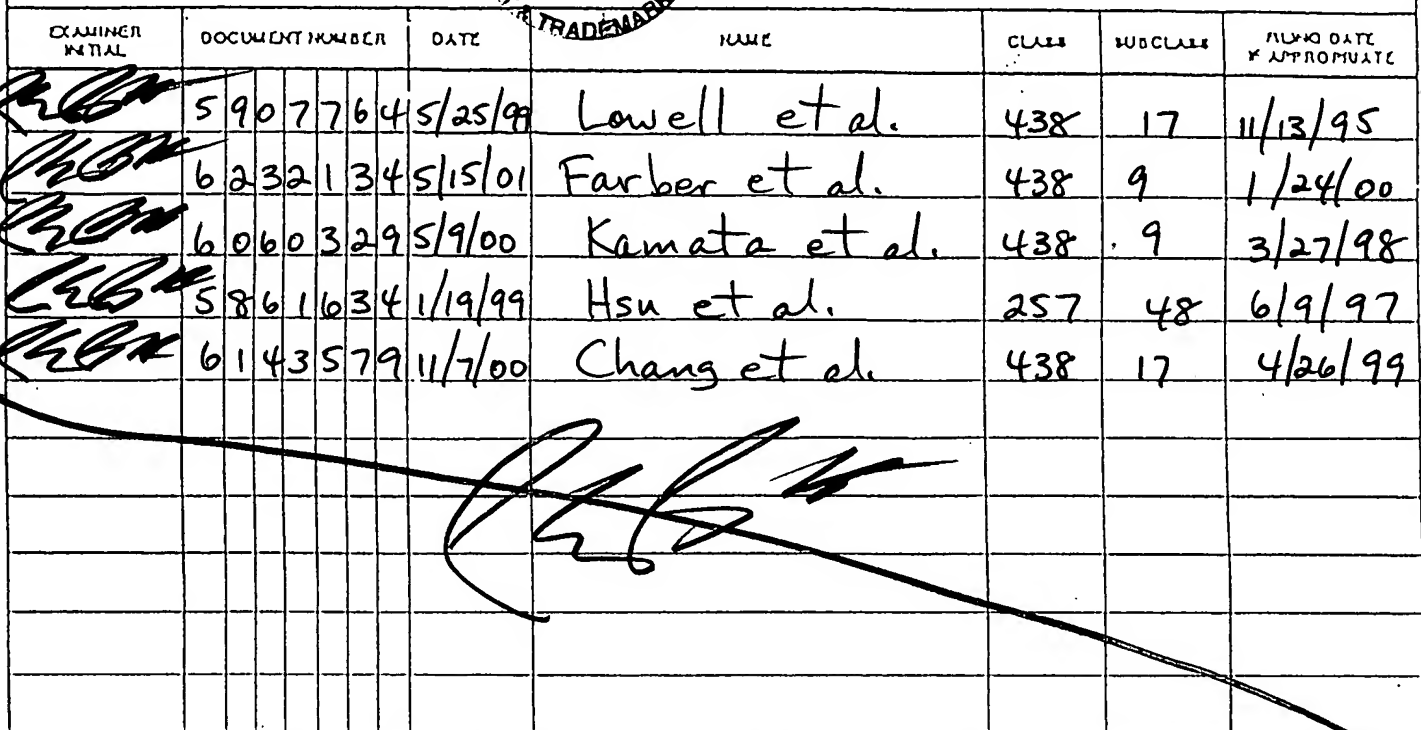 TRADEMARK
EXAMINER INITIAL DOCUMENT NUMBER DATE NAME CLASS SUBCLASS FILING DATE IF APPROPRIATE
5907764 5/25/99 Lowell et al. 438 17 11/13/95
6232134 5/15/01 Farber et al. 438 9 1/24/00
6060329 5/9/00 Kamata et al. 438 9 3/27/98
5861634 1/19/99 Hsu et al. 257 48 6/9/97
6143579 11/7/00 Chang et al. 438 17 4/26/99